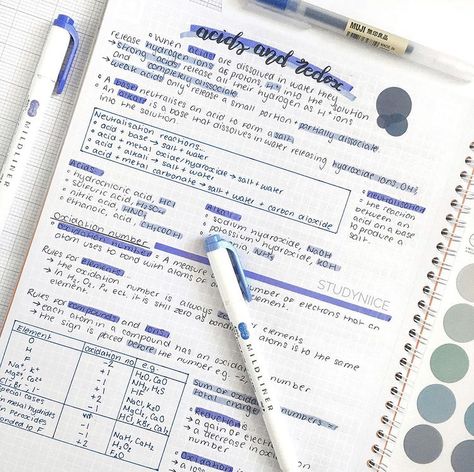 acids and redox
MUJI 無印良品
MILDLINER
• When acids are dissolved in water they
release hydrogen ions as protons, H⁺ into the solution
→ strong acids release all their hydrogen as H⁺ ions
and completely dissociate
→ weak acids only release a small portion + partially dissociate
• A base neutralises an acid to form a salt
• An alkali is a base that dissolves in water releasing hydroxide ions, OH⁻
into the solution.
Neutralisation reactions...
• acid + base → salt + water
• acid + metal oxide/hydroxide → salt + water
• acid + alkali → salt + water
• acid + metal carbonate → salt + water + carbon dioxide
Neutralisation
• the reaction
between an
acid and a base
to produce a
salt.
Acids
• hydrochloric acid, HCl
• sulfuric acid, H₂SO₄
• nitric acid, HNO₃
• ethanoic acid, CH₃COOH
Alkali
• sodium hydroxide, NaOH
• potassium hydroxide, KOH
NH₃
Oxidation number
• Oxidation number: A measure of the number of electrons that an
atom uses to bond with atoms of element.
STUDYNIICE
Rules for elements
• the oxidation number is always zero for elements
→ In H₂, O₂, P₄ ect. it is still zero as bonding atoms is to the same
element.
Rules for compounds and ions
→ each atom in a compound has an oxidation number
• the sign is placed before the number e.g. -2,
Element
Oxidation no.
e.g.
O
-2
H₂O, CaO
H
+1
NH₃, H₂S
F
-1
HF
Na⁺, K⁺
+1
NaCl, K₂O
Mg²⁺, Ca²⁺
+2
MgCl₂, CaO
Cl⁻, Br⁻, I⁻
-1
HCl, KBr
special cases
in metal hydrides
-1
NaH, CaH₂
in peroxides
-1
H₂O₂
bonded to F
+2
F₂O
Sum of oxidation numbers =
total charge
Reduction
→ a gain of electrons
→ a decrease in oxidation
number
MILDLINER